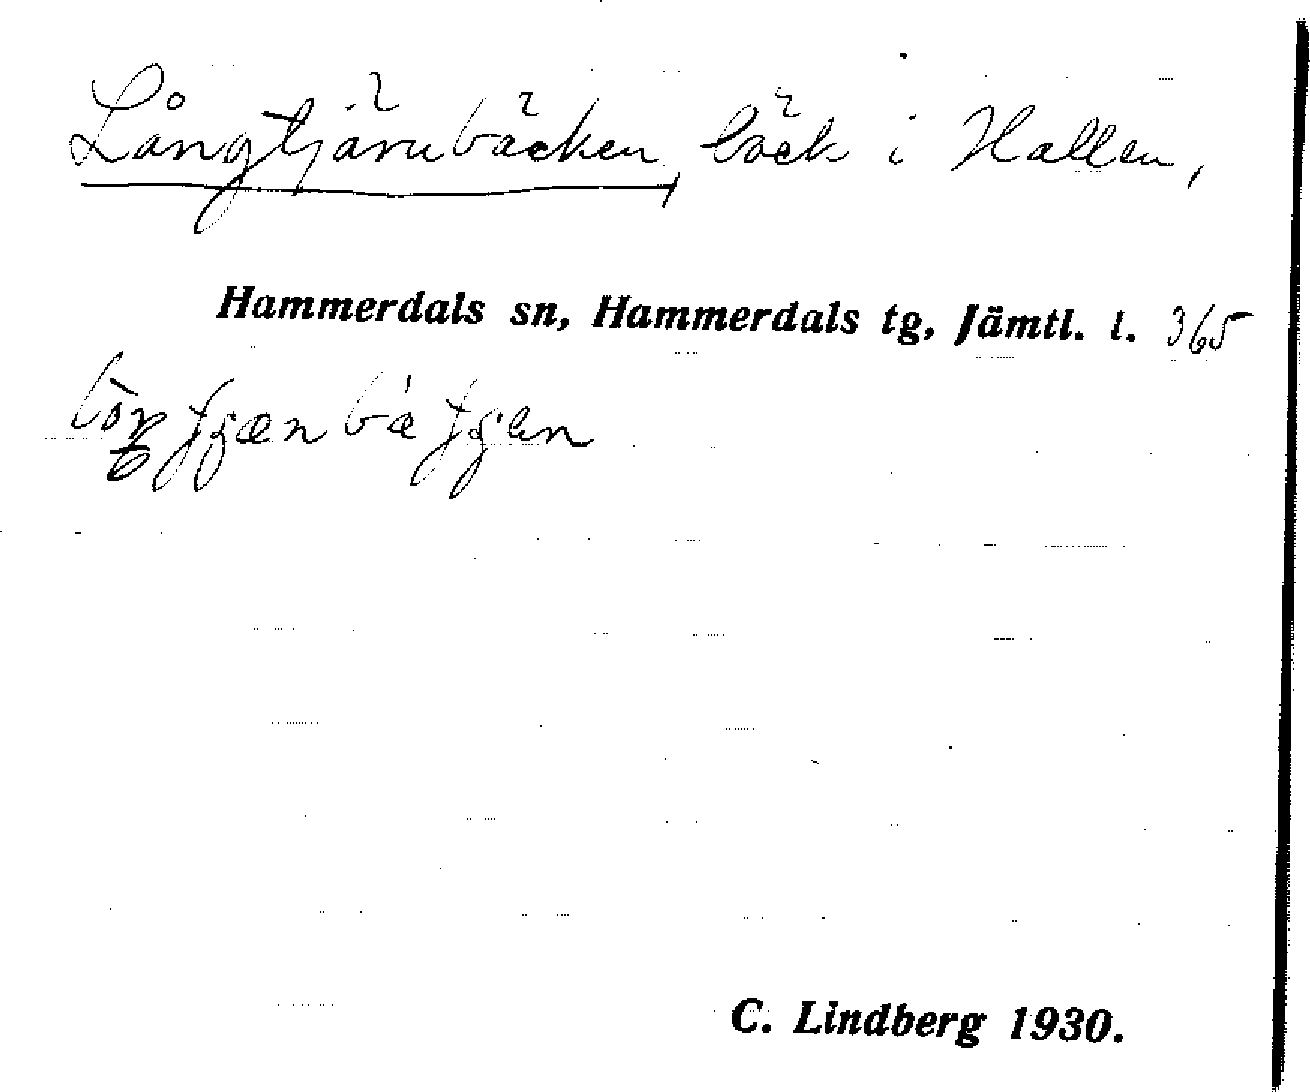 Långtjärnbäcken, bäck i Hallen,
Hammerdals sn, Hammerdals tg, Jämtl. l. 365
C. Lindberg 1930.